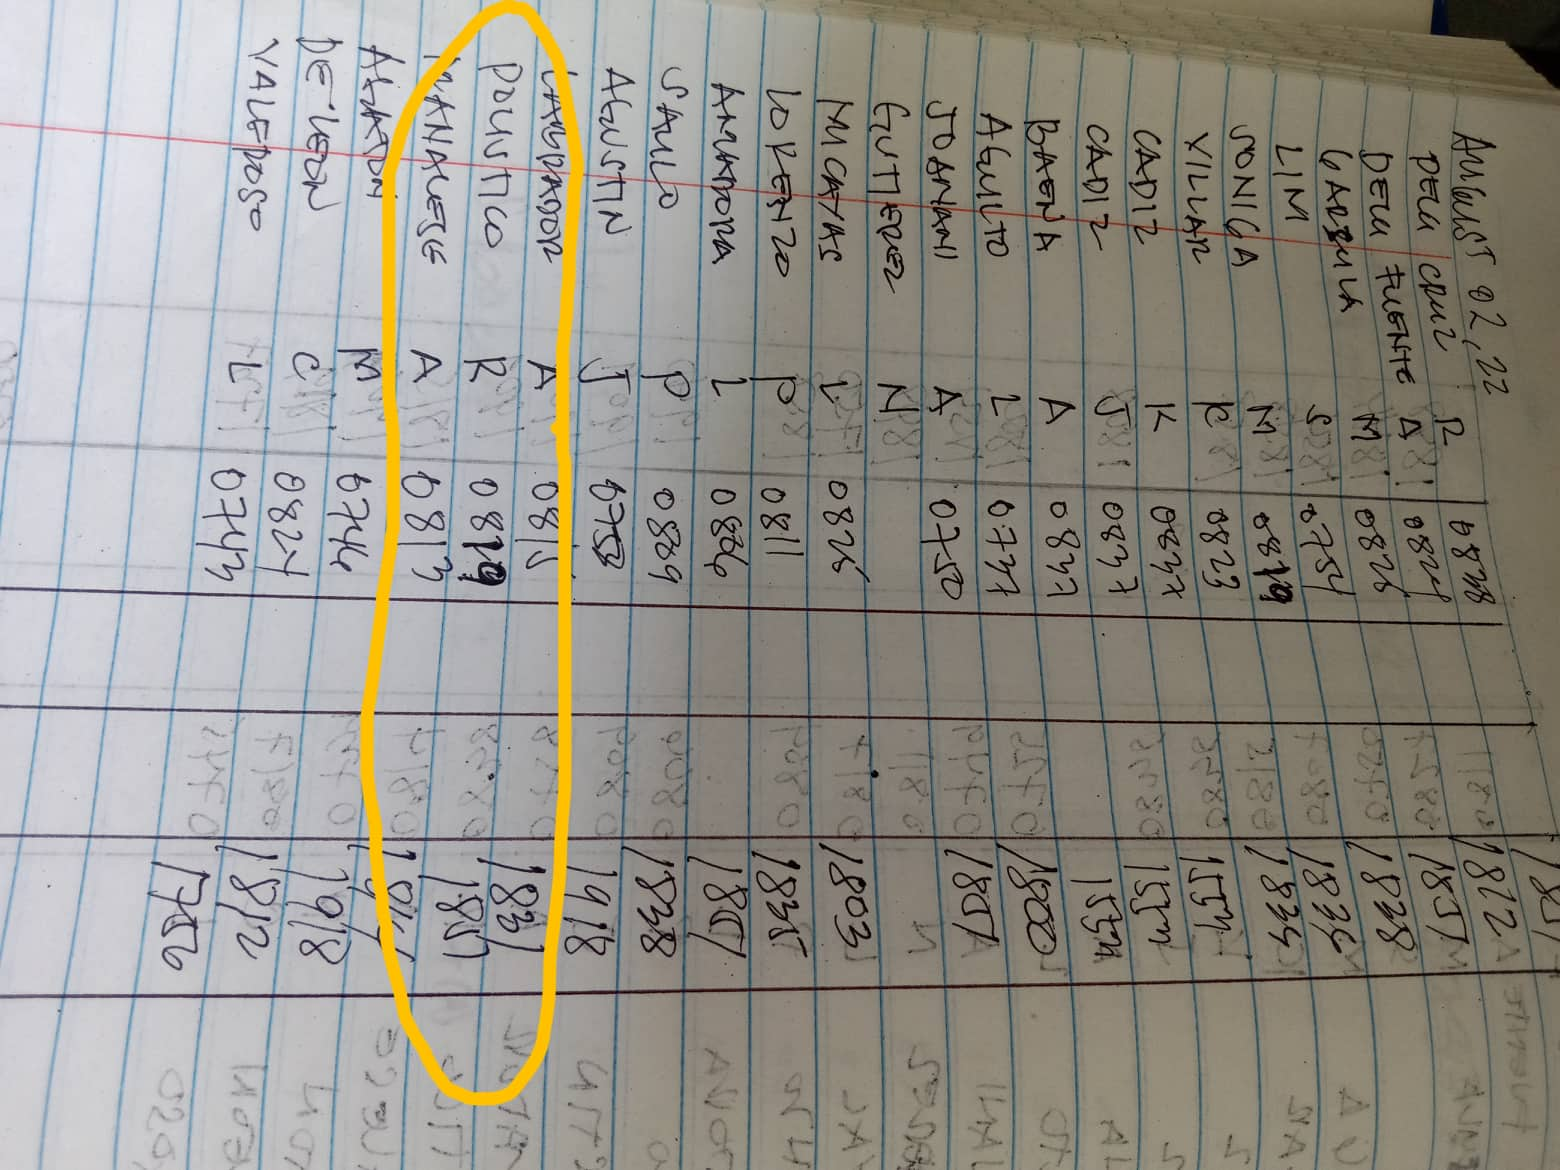 AUGUST 02, 22
DELA CRUZ R 0828
DELA FUENTE A 0824 1812
GARDULA M 0826 1857
LIM S 0754 1838
SONIGA M 0819 1835
VILLAR R 0823 1833
CADIZ K 0847 1554
CADIZ J 0847 1554
BAENA A 0847 1534
AGULTO L 0747 1800
JOAMANI A 0750 1807
GUTIEREZ N
MICAYAS L 0826 1803
LORENZO P 0811 1835
AMADORA L 0826 1807
SAULO P 0829 1838
AGUSTIN J 0753 1918
LABRADOR A 0815 1831
POLISTICO R 0819 1807
MANALESE A 0813
ALAJON M 0744 1918
DE LEON C 0824 1812
VALEROSO L 0743 1756